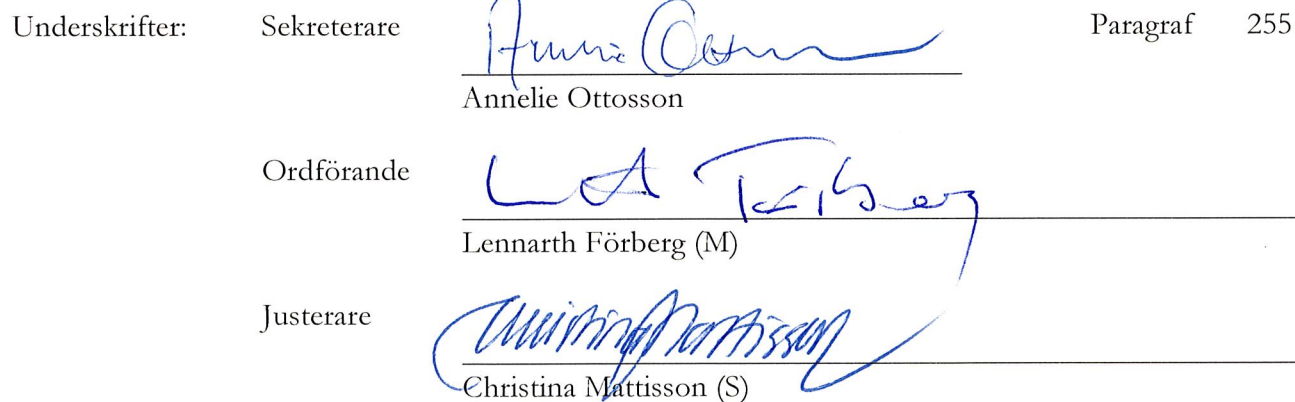 Underskrifter: Sekreterare Paragraf 255
Annelie Ottosson
Ordförande
Lennarth Förberg (M)
Justerare
Christina Mattisson
Christina Mattisson (S)